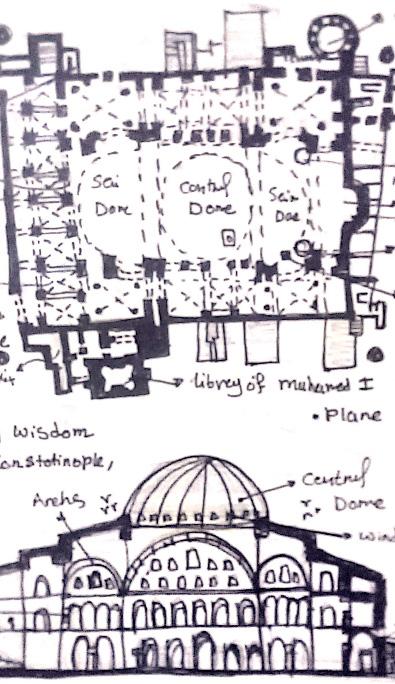 Semi
Dome
Central
Dome
Semi
Dome
library of muhamed I
• Plane
wisdom
Constotinople,
Arches
Central
Dome
wind